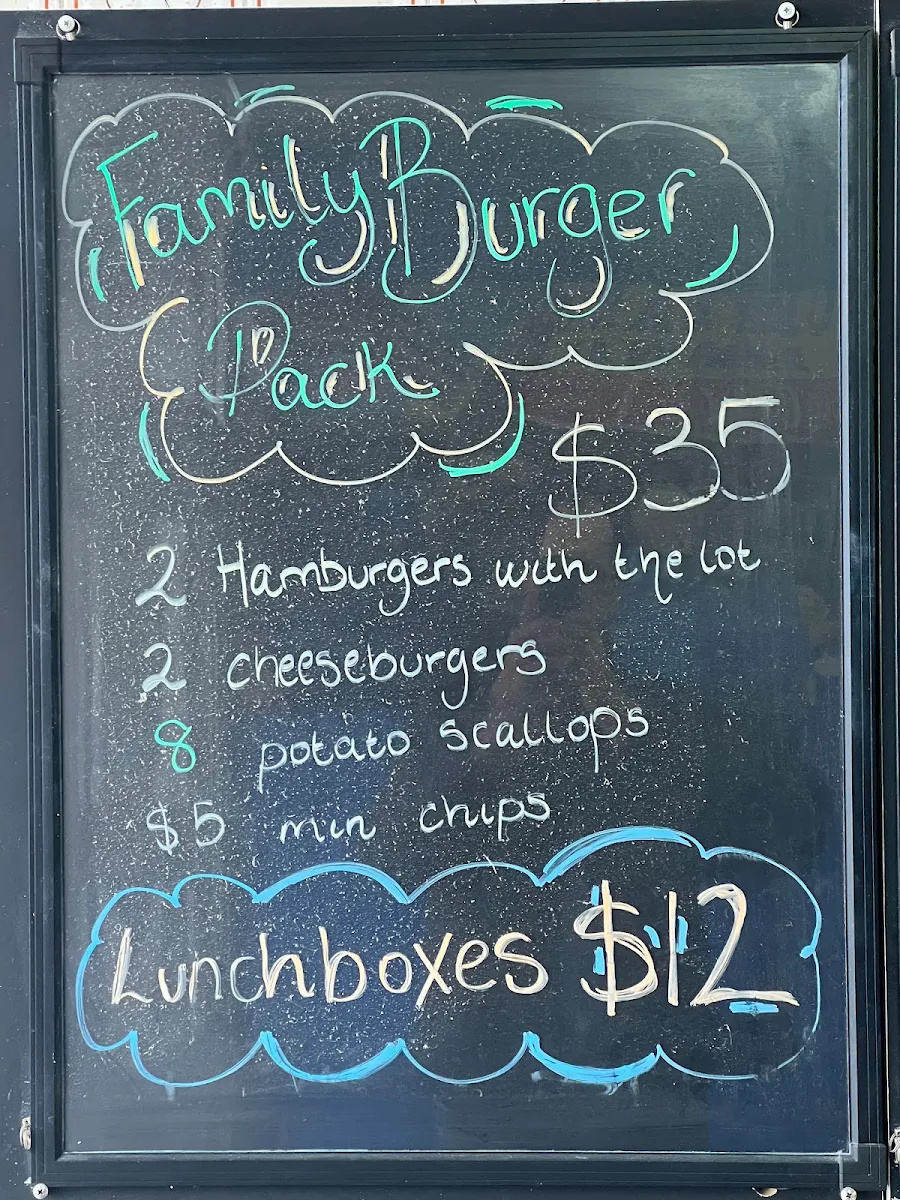 Family Burger
Pack
$35
2 Hamburgers with the lot
2 cheeseburgers
8 potato scallops
$5 min chips
Lunchboxes $12